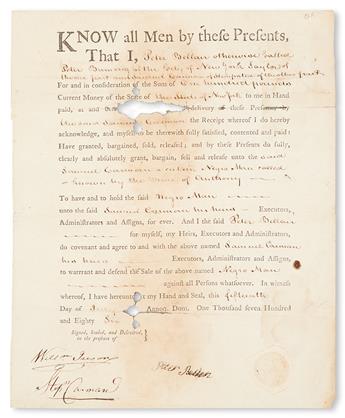 KNOW all Men by these Presents,
That I, Peter Bellan otherwise called
Peter of the City of New York Taylor of
the one part and Samuel Carman of of the other part
For and in consideration of the Sum of One hundred pounds
Current Money of the State of New York to me in Hand
paid, at and delivery of these Presents by
the said Samuel Carman the Receipt whereof I do hereby
acknowledge, and myself to be therewith fully satisfied, contented and paid:
Have granted, bargained, sold, released; and by these Presents do fully,
clearly and absolutely grant, bargain, sell and release unto the said
Samuel Carman a certain Negro Man called
known by the Name of Anthony
To have and to hold the said Negro Man
unto the said Samuel Carman his heirs Executors,
Administrators and Assigns, for ever. And I the said Peter Bellan
for myself, my Heirs, Executors and Administrators,
do covenant and agree to and with the above named Samuel Carman
his heirs Executors, Administrators and Assigns,
to warrant and defend the Sale of the above named Negro Man
against all Persons whatsoever. In witness
whereof, I have hereunto my Hand and Seal, this fifteenth
Day of Annoq. Dom. One Thousand seven Hundred
and Eighty Six
Signed, Sealed, and Delivered,
in the presence of
Peter Bellan
Carman